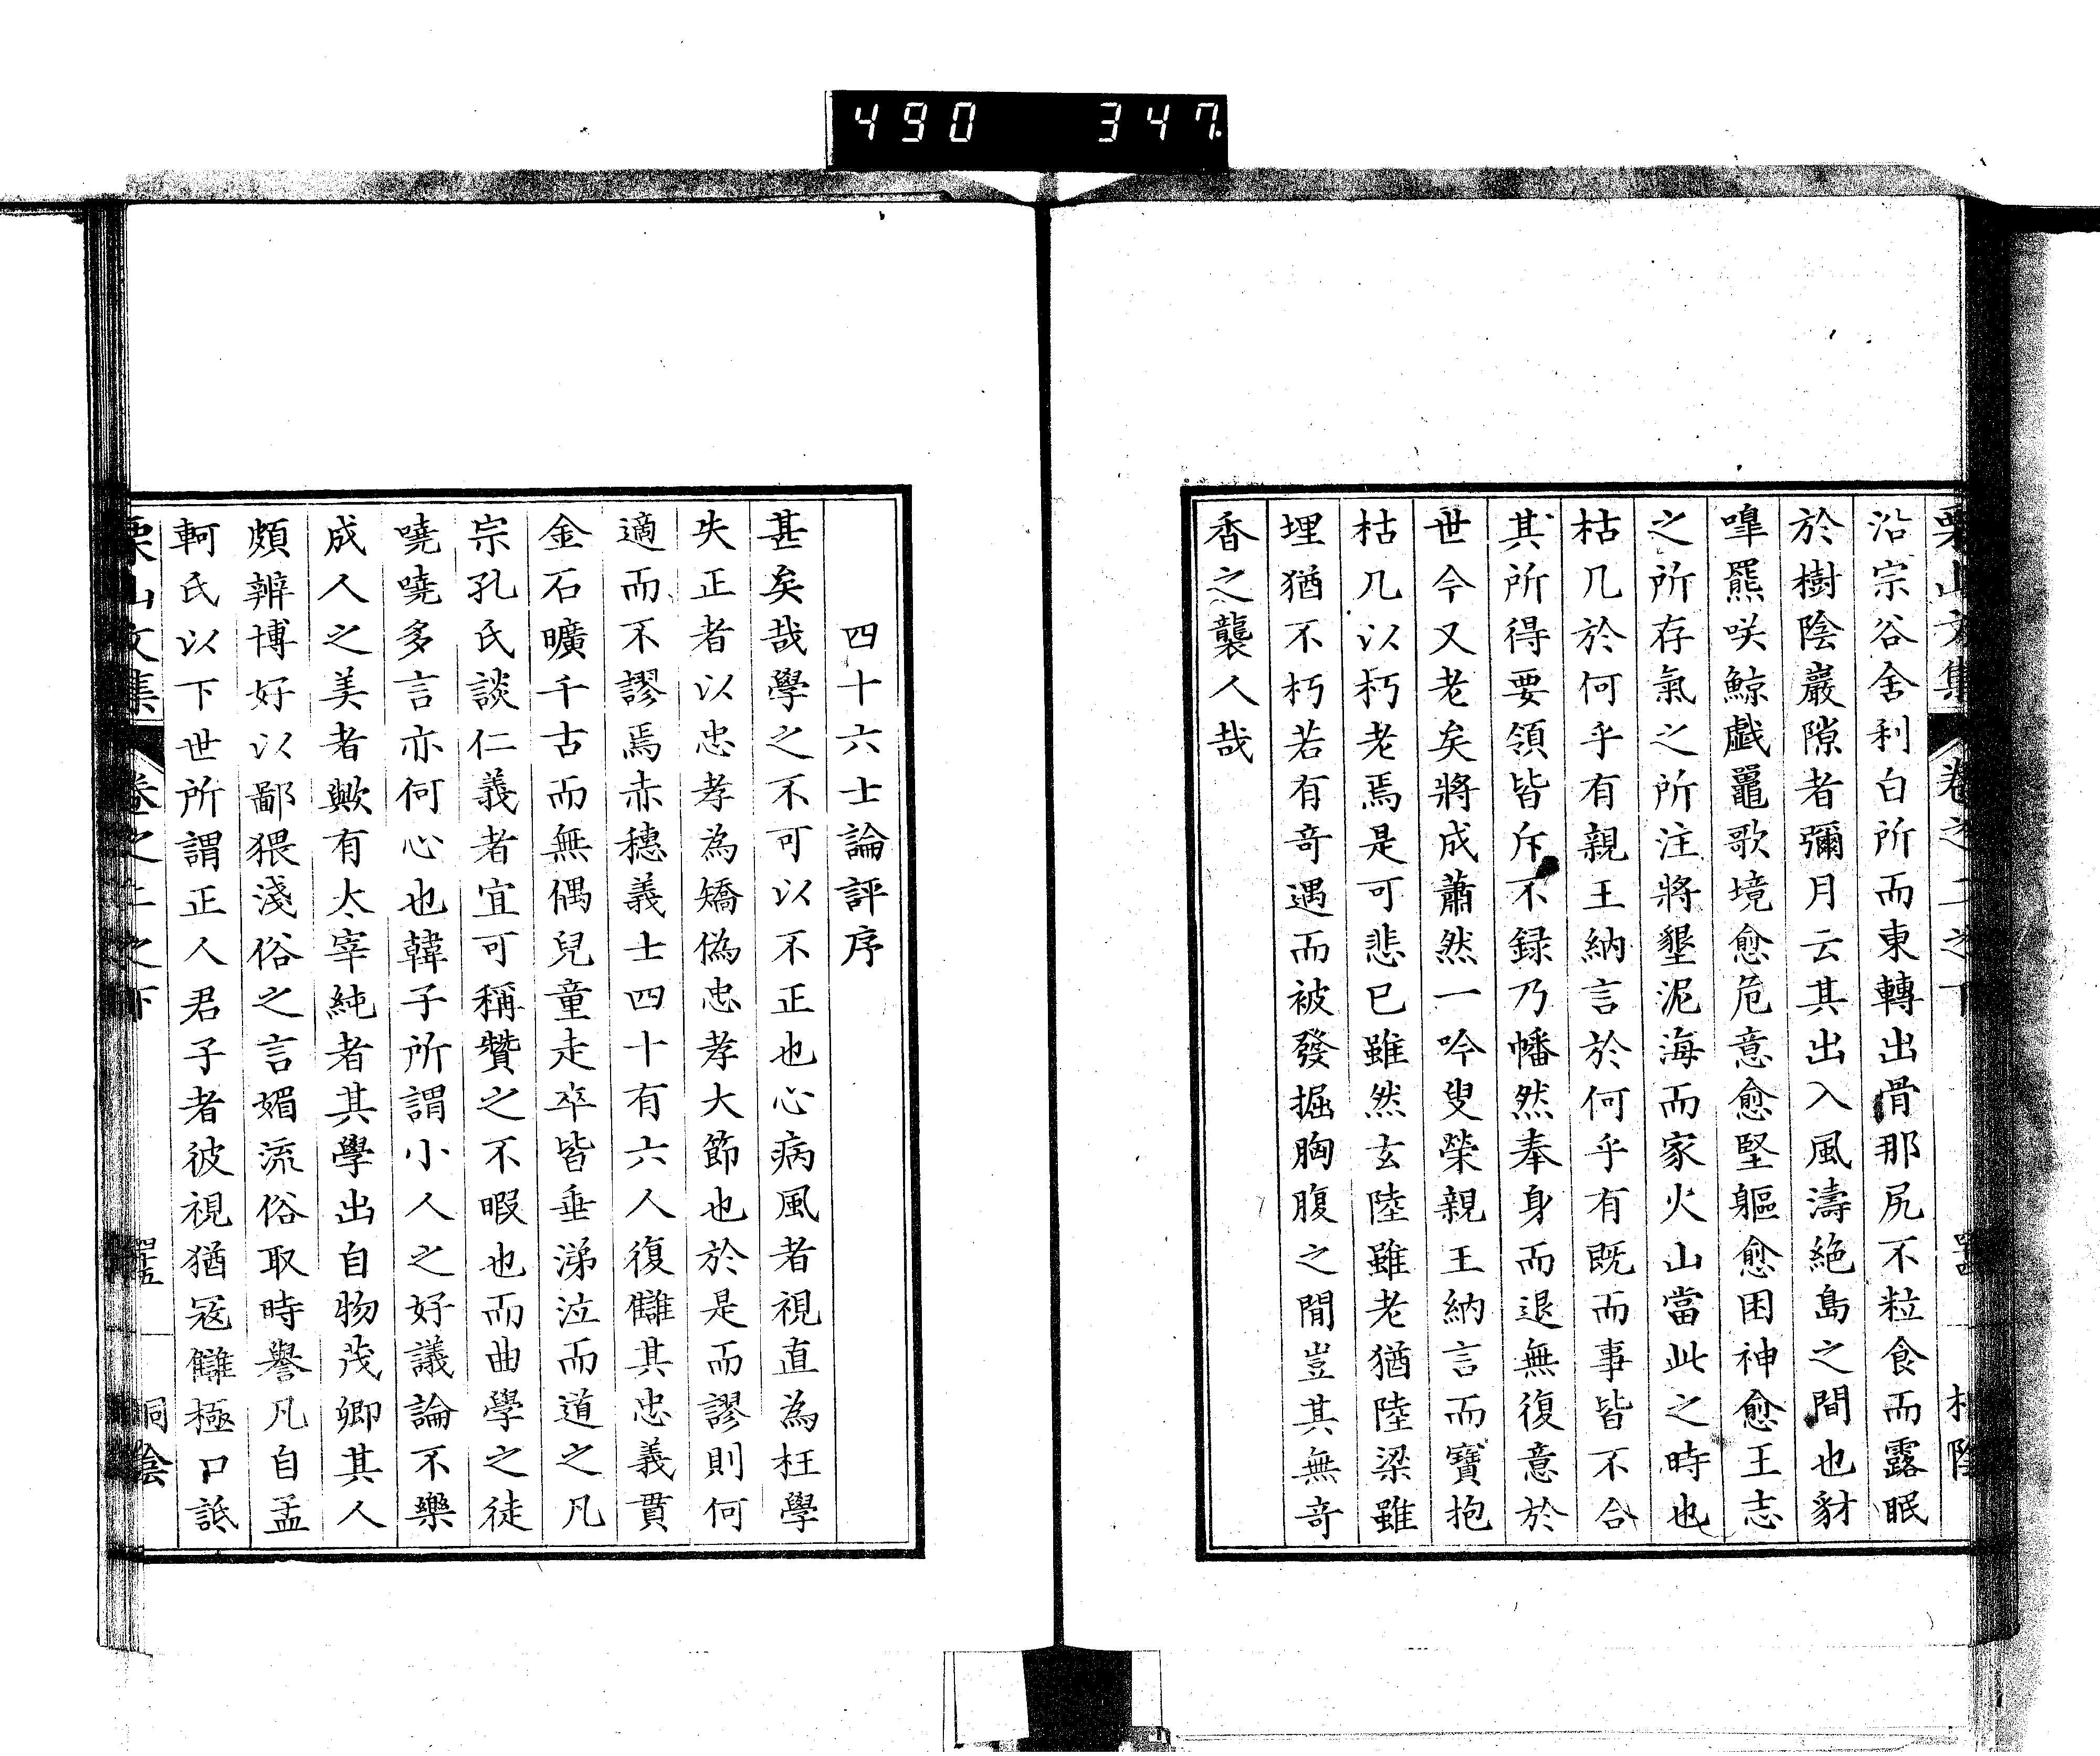 490 347
沿宗谷舍利白所而東轉出骨那尻不粒食而露眠
於樹陰巖隙者彌月云其出入風濤絶島之間也豺
嘷羆咲鯨戯鼍歌境愈危意愈堅軀愈困神愈王志
之所存氣之所注將墾泥海而家火山當此之時也
枯几於何乎有親王納言於何乎有既而事皆不合
其所得要領皆斥不録乃幡然奉身而退無復意於
世今又老矣將成蕭然一吟叟榮親王納言而寶抱
枯几以朽老焉是可悲已雖然玄陸雖老猶陸梁雖
埋猶不朽若有奇遇而被發掘胸腹之間豈其無奇
香之襲人哉
四十六士論評序
甚矣哉學之不可以不正也心病風者視直為枉學
失正者以忠孝為矯偽忠孝大節也於是而謬則何
適而不謬焉赤穗義士四十有六人復讎其忠義貫
金石曠千古而無偶兒童走卒皆垂涕泣而道之凡
宗孔氏談仁義者宜可稱贊之不暇也而曲學之徒
嘵嘵多言亦何心也韓子所謂小人之好議論不樂
成人之美者歟有太宰純者其學出自物茂卿其人
頗辨博好以鄙猥淺俗之言媚流俗取時譽凡自孟
軻氏以下世所謂正人君子者彼視猶寇讎極口詆
栗山文集 卷之二之下 桐陰